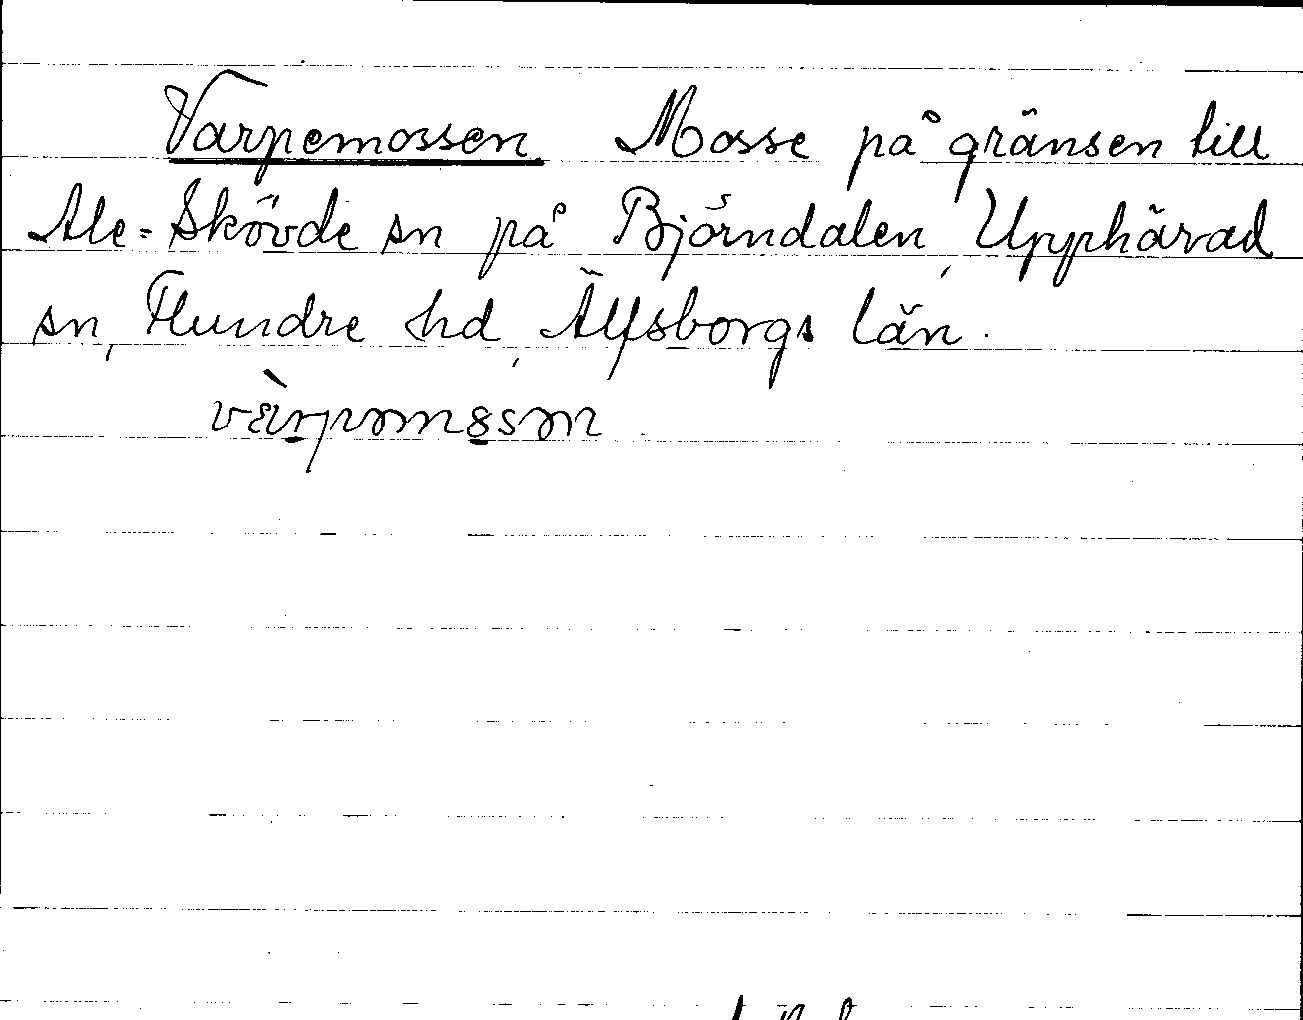 Varpemossen Mosse på gränsen till
Ale-Skövde sn på Björndalen, Upphärad
sn, Flundre hd, Älfsborgs län.